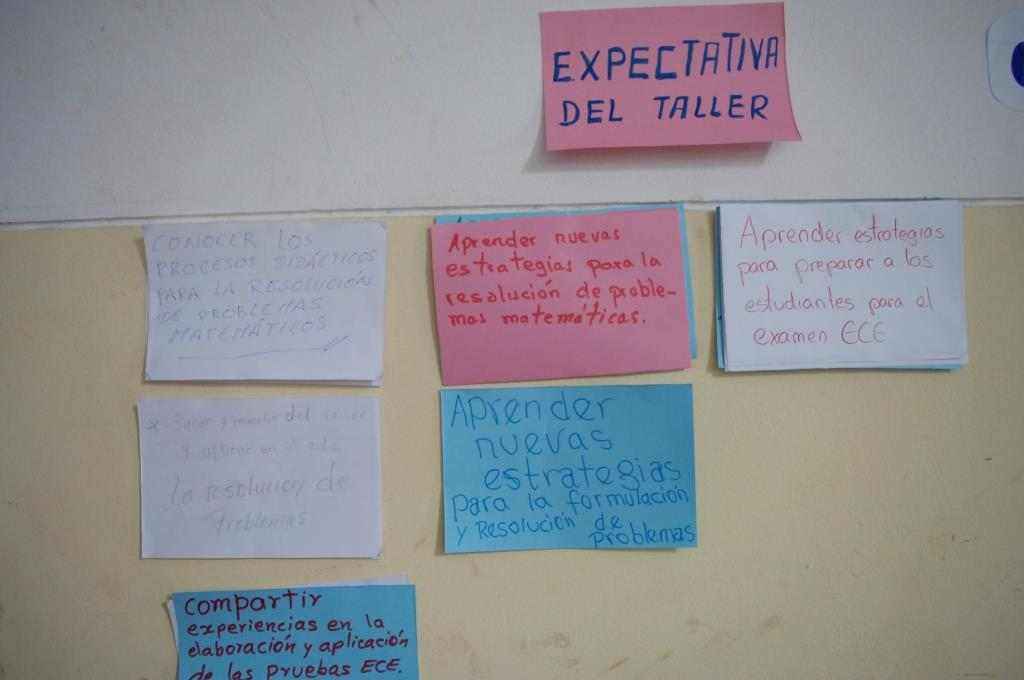 EXPECTATIVA
DEL TALLER
CONOCER LOS
PROCESOS DIDÁCTICOS
PARA LA RESOLUCIÓN
DE PROBLEMAS
MATEMÁTICOS
Aprender nuevas
estrategias para la
resolución de proble-
mas matemáticas.
Aprender estrategias
para preparar a los
estudiantes para el
examen ECE
del
la resolucion de
Problemas
Aprender
nuevas
estrategias
para la formulación
y Resolución de
problemas
Compartir
experiencias en la
elaboración y aplicación
de las pruebas ECE.